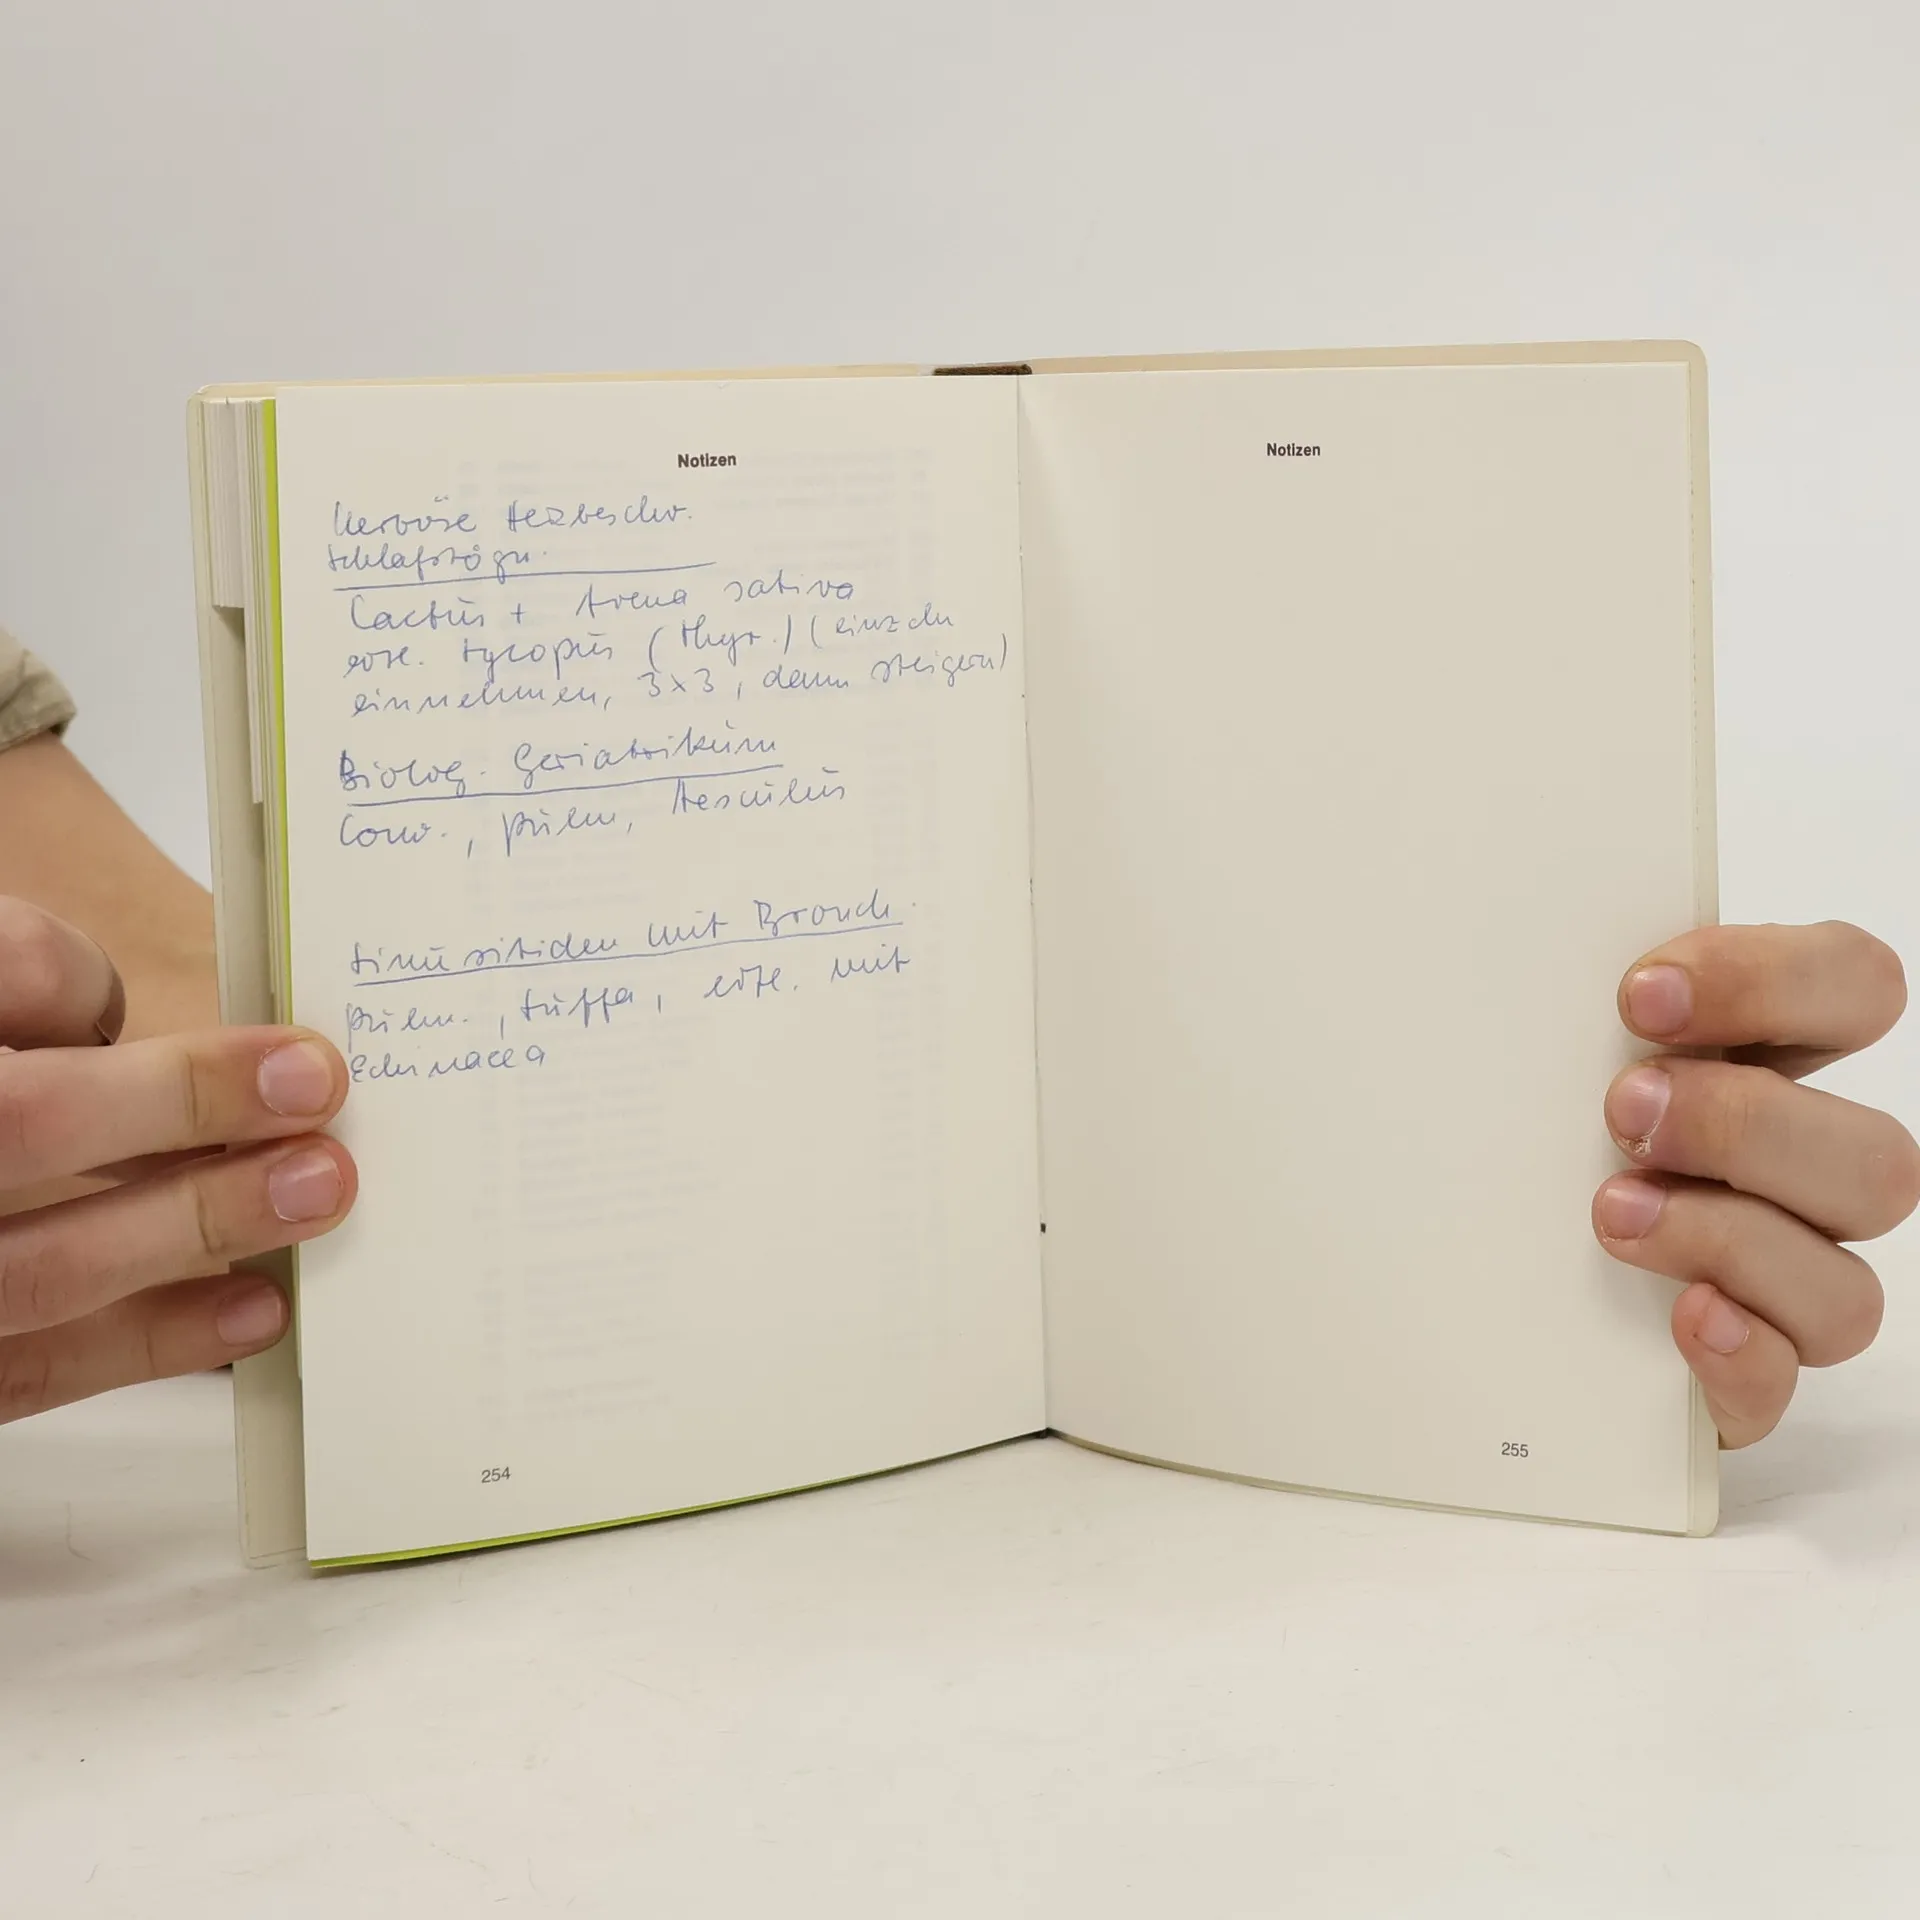 Notizen
Nervöse Herzbeschw.
Schlafstögn.
Cactus + Avena sativa
evtl. Lycopus (Thyr.) (einzeln
einnehmen, 3x3, dann steigern)
Biolog. Geriatrikum
Conv., Pulm, Aesculus
Sinusitiden mit Bronch.
Pulm., Luffa, evtl. mit
Echinacea
254
Notizen
255